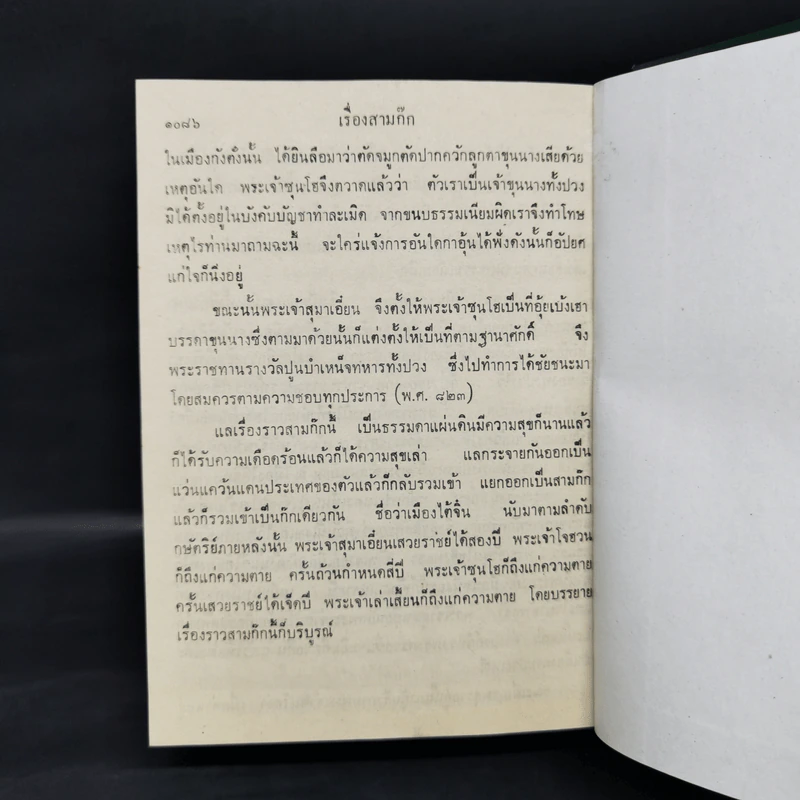 ๑๐๘๖
เรื่องสามก๊ก
ในเมืองกังตั๋งนั้น ได้ยินลือมาว่าตัดจมูกตัดปากควักลูกตาขุนนางเสียด้วย
เหตุอันใด พระเจ้าซุนโฮจึงตวาดแล้วว่า ตัวเราเป็นเจ้าขุนนางทั้งปวง
มิได้ตั้งอยู่ในบังคับบัญชาทำละเมิด จากขนบธรรมเนียมผิดเราจึงทำโทษ
เหตุไรท่านมาถามฉะนี้ จะใคร่แจ้งการอันใดกาอุ้นได้ฟังดังนั้นก็อัปยศ
แก่ใจก็นิ่งอยู่
ขณะนั้นพระเจ้าสุมาเอี๋ยน จึงตั้งให้พระเจ้าซุนโฮเป็นที่อุ้ยเบ้งเฮา
บรรดาขุนนางซึ่งตามมาด้วยนั้นก็แต่งตั้งให้เป็นที่ตามฐานาศักดิ์ จึง
พระราชทานรางวัลปูนบำเหน็จทหารทั้งปวง ซึ่งไปทำการได้ชัยชนะมา
โดยสมควรตามความชอบทุกประการ (พ.ศ. ๘๒๓)
แลเรื่องราวสามก๊กนี้ เป็นธรรมดาแผ่นดินมีความสุขก็นานแล้ว
ก็ได้รับความเดือดร้อนแล้วก็ได้ความสุขเล่า แลกระจายกันออกเป็น
แว่นแคว้นแดนประเทศของตัวแล้วก็กลับรวมเข้า แยกออกเป็นสามก๊ก
แล้วก็รวมเข้าเป็นก๊กเดียวกัน ชื่อว่าเมืองไต้จิ้น นับมาตามลำดับ
กษัตริย์ภายหลังนั้น พระเจ้าสุมาเอี๋ยนเสวยราชย์ได้สองปี พระเจ้าโจฮวน
ก็ถึงแก่ความตาย ครั้นถ้วนกำหนดสี่ปี พระเจ้าซุนโฮก็ถึงแก่ความตาย
ครั้นเสวยราชย์ได้เจ็ดปี พระเจ้าเล่าเสี้ยนก็ถึงแก่ความตาย โดยบรรยาย
เรื่องราวสามก๊กนี้ก็บริบูรณ์